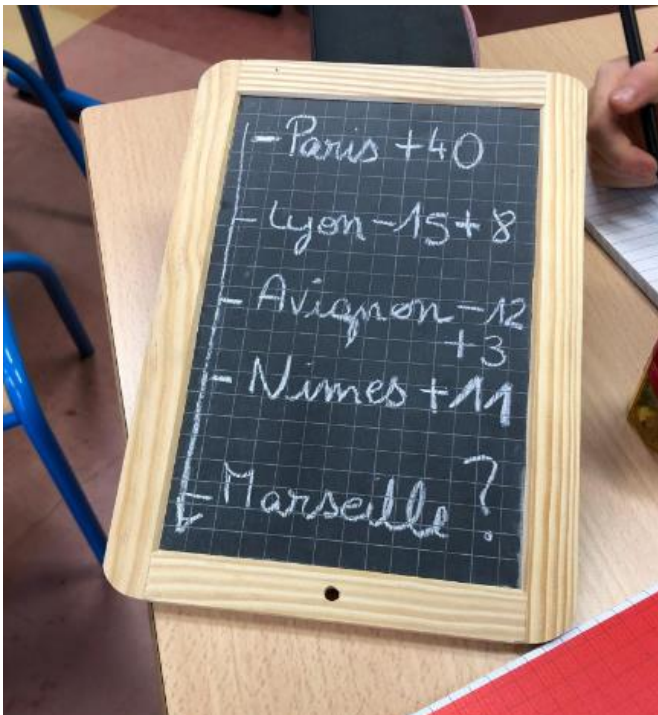 - Paris +40
- Lyon -15+8
- Avignon -12
+3
- Nimes +11
- Marseille ?